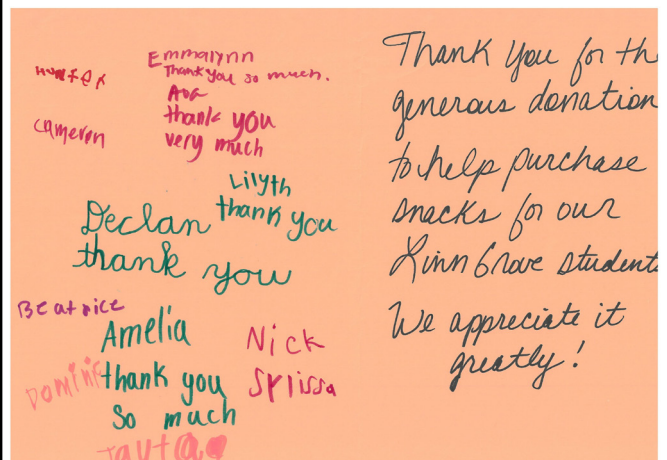 Emmalynn
Thank you so much.
Hunter
Ava
thank you
very much
Cameron
Lilyth
thank you
Declan
thank you
Beatrice
Amelia
thank you
So much
Nick
Sylissa
Thank You for th
generous donation
to help purchase
snacks for our
Linn Grove students
We appreciate it
greatly!